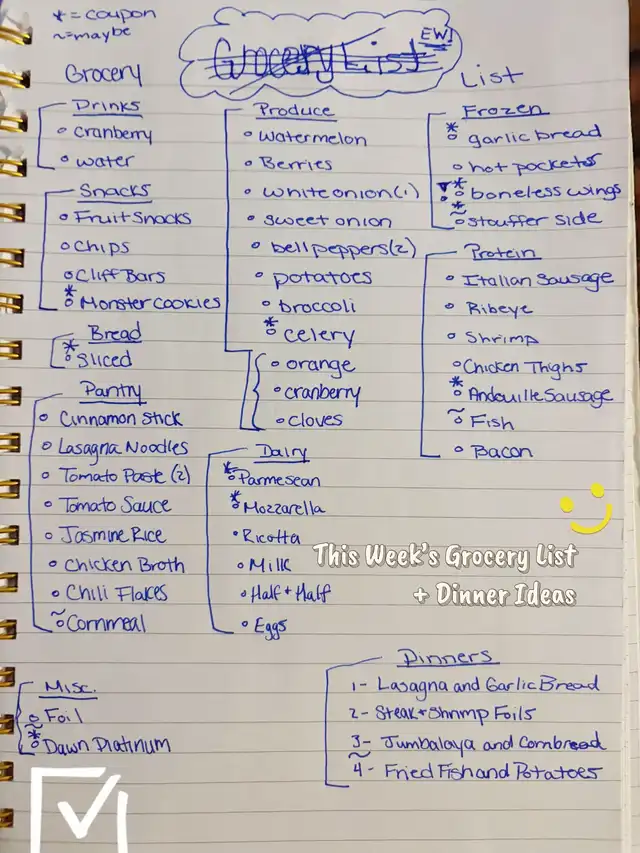 *=coupon
~=maybe
Grocery List
EW!
Grocery
List
Drinks
cranberry
water
Snacks
Fruit Snacks
Chips
Cliff Bars
* Monster cookies
Bread
* Sliced
Pantry
Cinnamon Stick
Lasagna Noodles
Tomato Paste (2)
Tomato Sauce
Jasmine Rice
Chicken Broth
Chili Flakes
~ Cornmeal
Misc.
Foil
~* Dawn Platinum
Produce
Watermelon
Berries
white onion (1)
sweet onion
bell peppers (2)
potatoes
broccoli
* celery
orange
cranberry
cloves
Dairy
* Parmesean
* Mozzarella
Ricotta
Milk
Half + Half
Eggs
Frozen
* garlic bread
hot pockets
* boneless wings
*~ stouffer side
Protein
Italian Sausage
Ribeye
Shrimp
Chicken Thighs
* Andouille Sausage
~ Fish
Bacon
This Week's Grocery List
+ Dinner Ideas
Dinners
1- Lasagna and Garlic Bread
2- Steak + Shrimp Foils
3- Jumbalaya and Cornbread
~ 4- Fried Fish and Potatoes